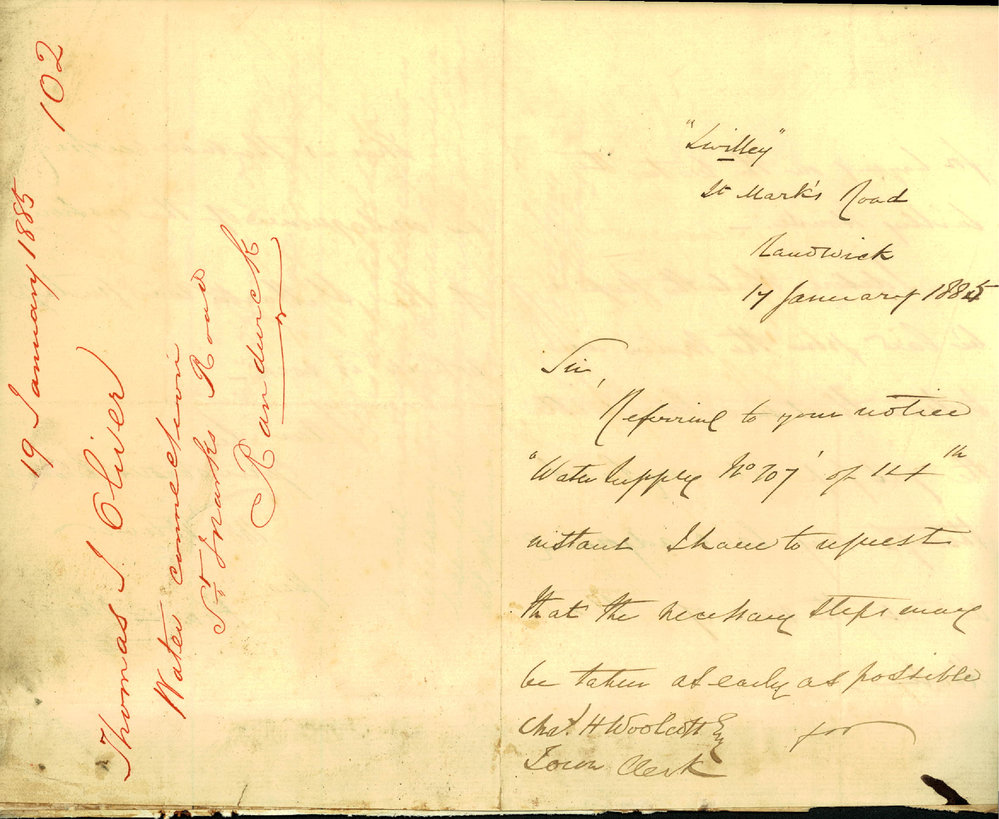 19 January 1885 102
Thomas J. Oliver
Water connection
St Marks Road
Randwick
"Swilley"
St Mark's Road
Randwick
17 January 1885
Sir,
Referring to your notice
"Water Supply No 707" of 14th
instant I have to request
that the necessary steps may
be taken as early as possible
for
Chas. H Woolcott Esq
Town Clerk